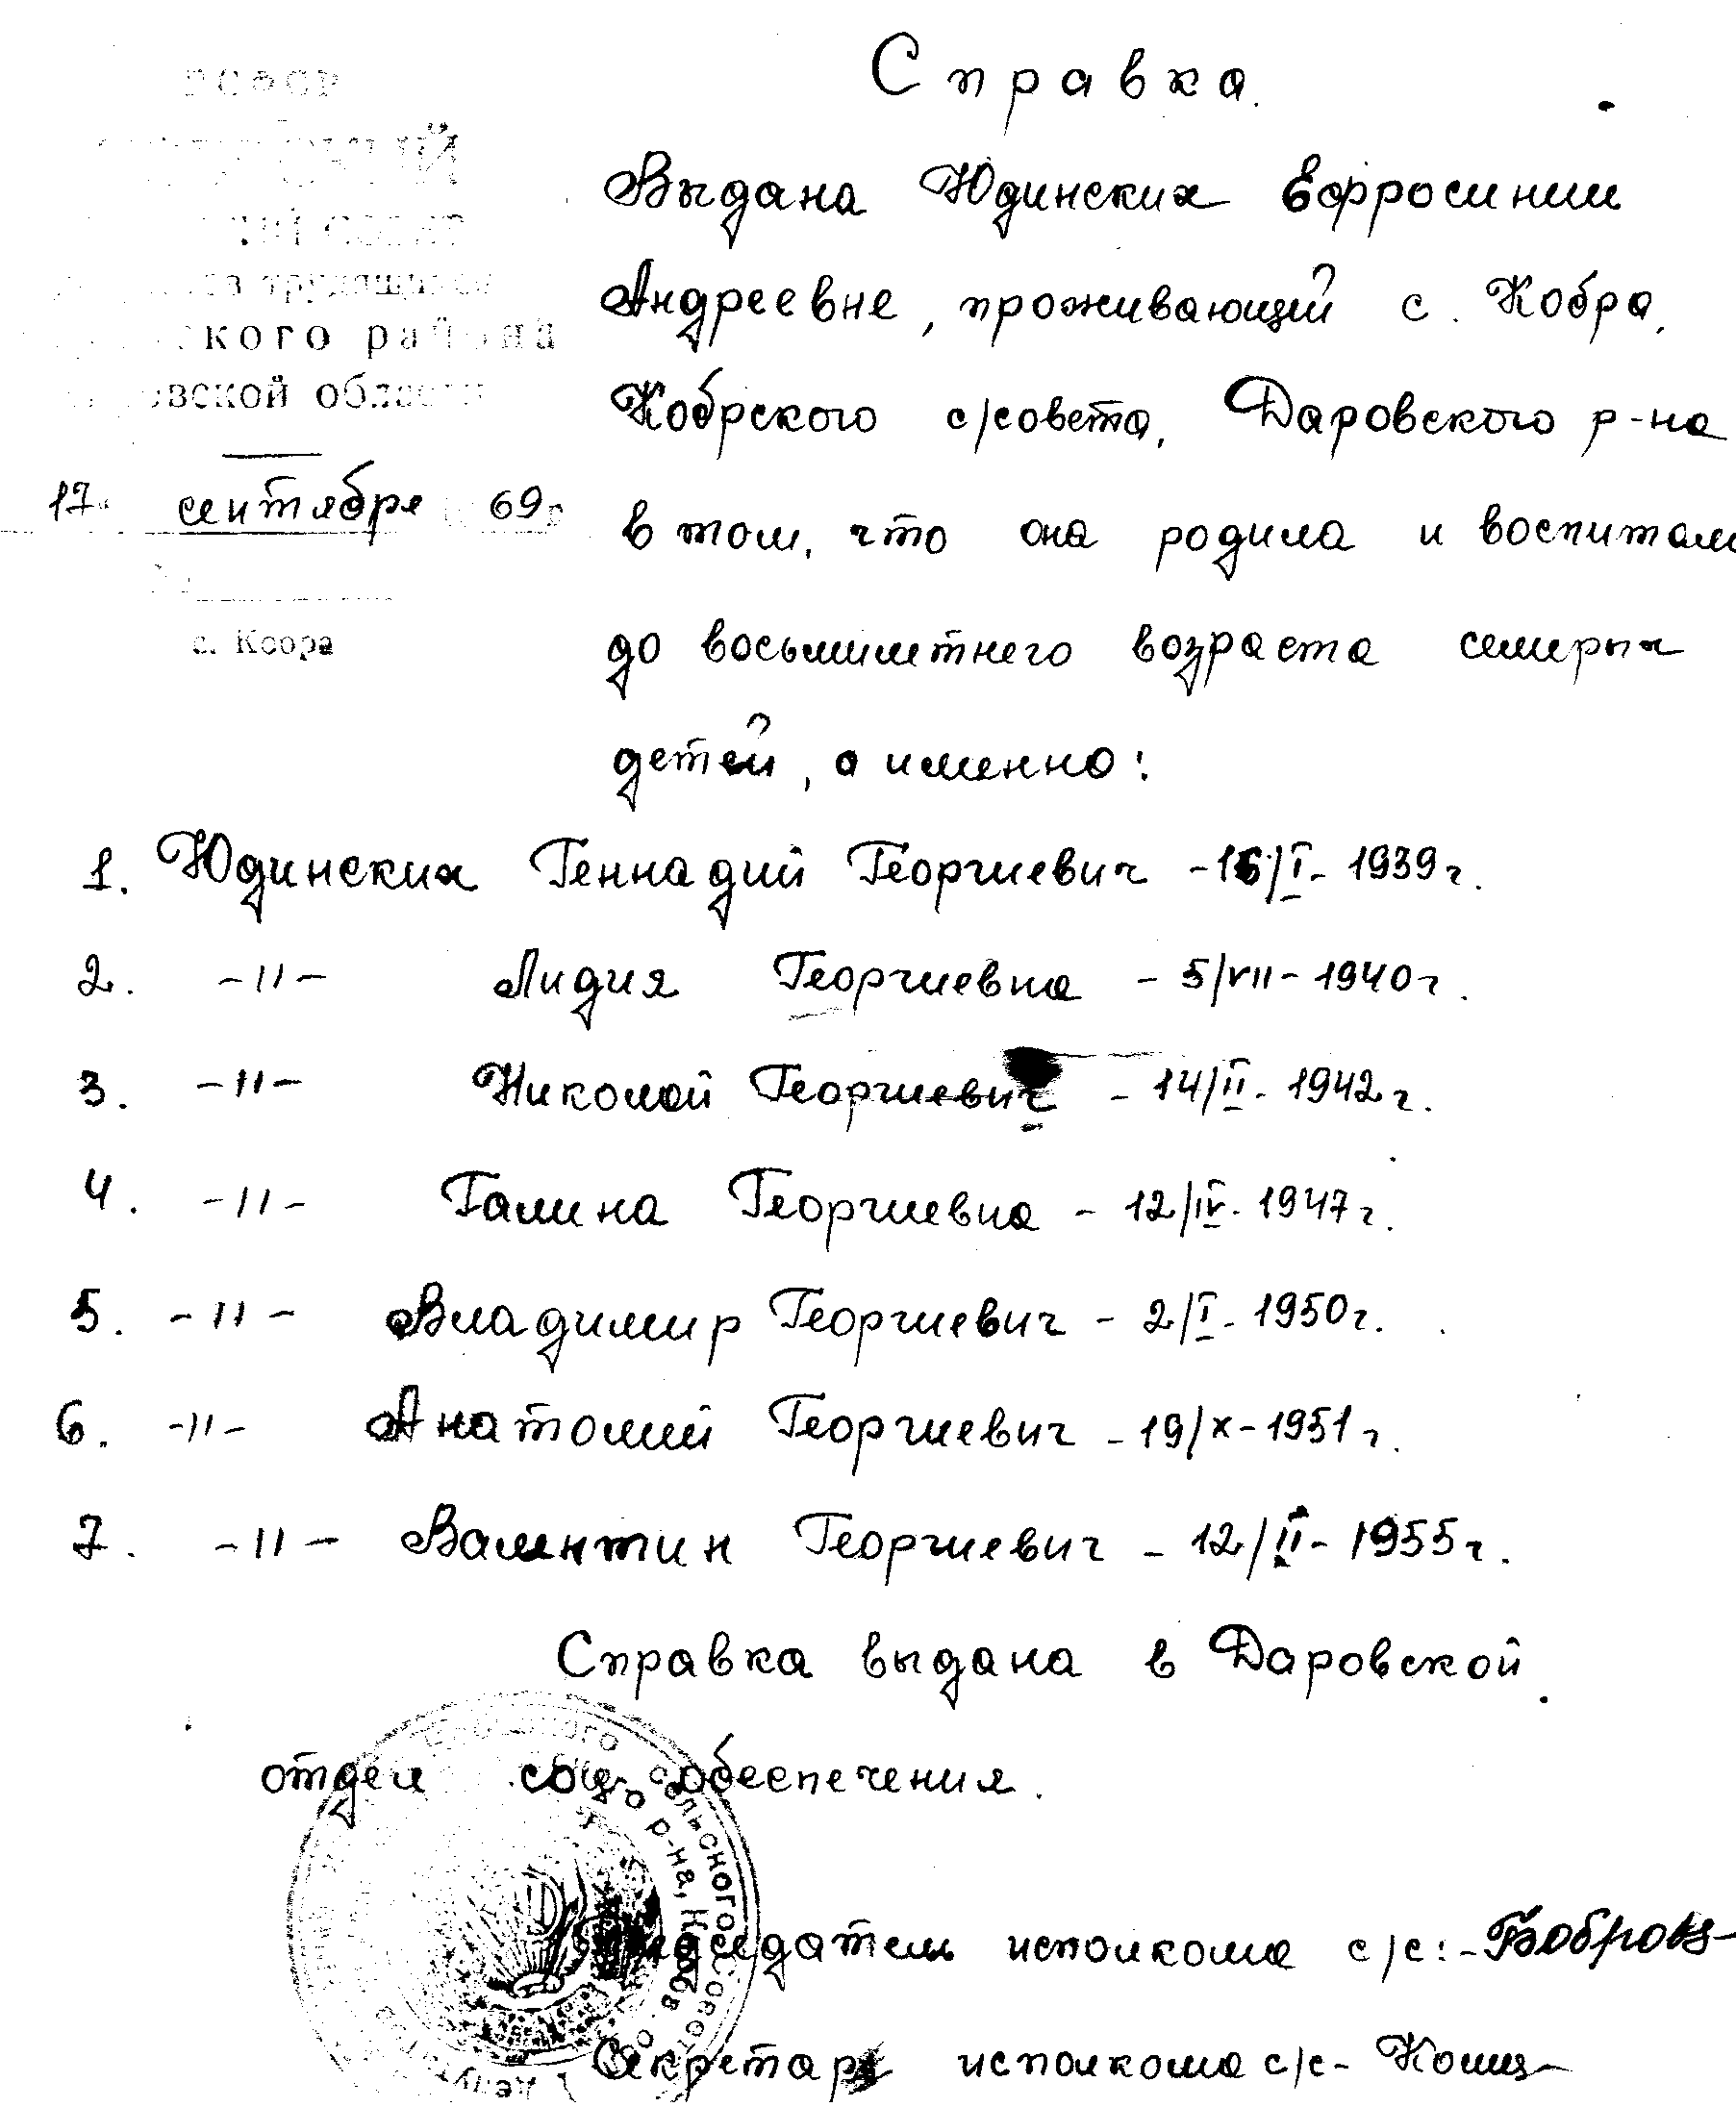 Справка.
РСФСР
трудящихся
ского района
овской области
17 сентября 69г
с. Кобра
Выдана Юдинских Ефросинии
Андреевне, проживающий с. Кобра,
Кобрского с/совета, Даровского р-на
в том, что она родила и воспитала
до восьмилетнего возраста семерых
детей, а именно:
1. Юдинских Геннадий Георгиевич -16/I- 1939г.
2. -//- Лидия Георгиевна - 5/VII - 1940г.
3. -//- Николай Георгиевич - 14/II- 1942г.
4. -//- Галина Георгиевна - 12/IV- 1947г.
5. -//- Владимир Георгиевич - 2/I- 1950г.
6. -//- Анатолий Георгиевич - 19/X-1951г.
7. -//- Валентин Георгиевич - 12/II- 1955г.
Справка выдана в Даровской
отдел соц. обеспечения.
сельского Совета
р-на, Киров. обл.
Председатель исполкома с/с:-
Секретарь исполкома с/с-